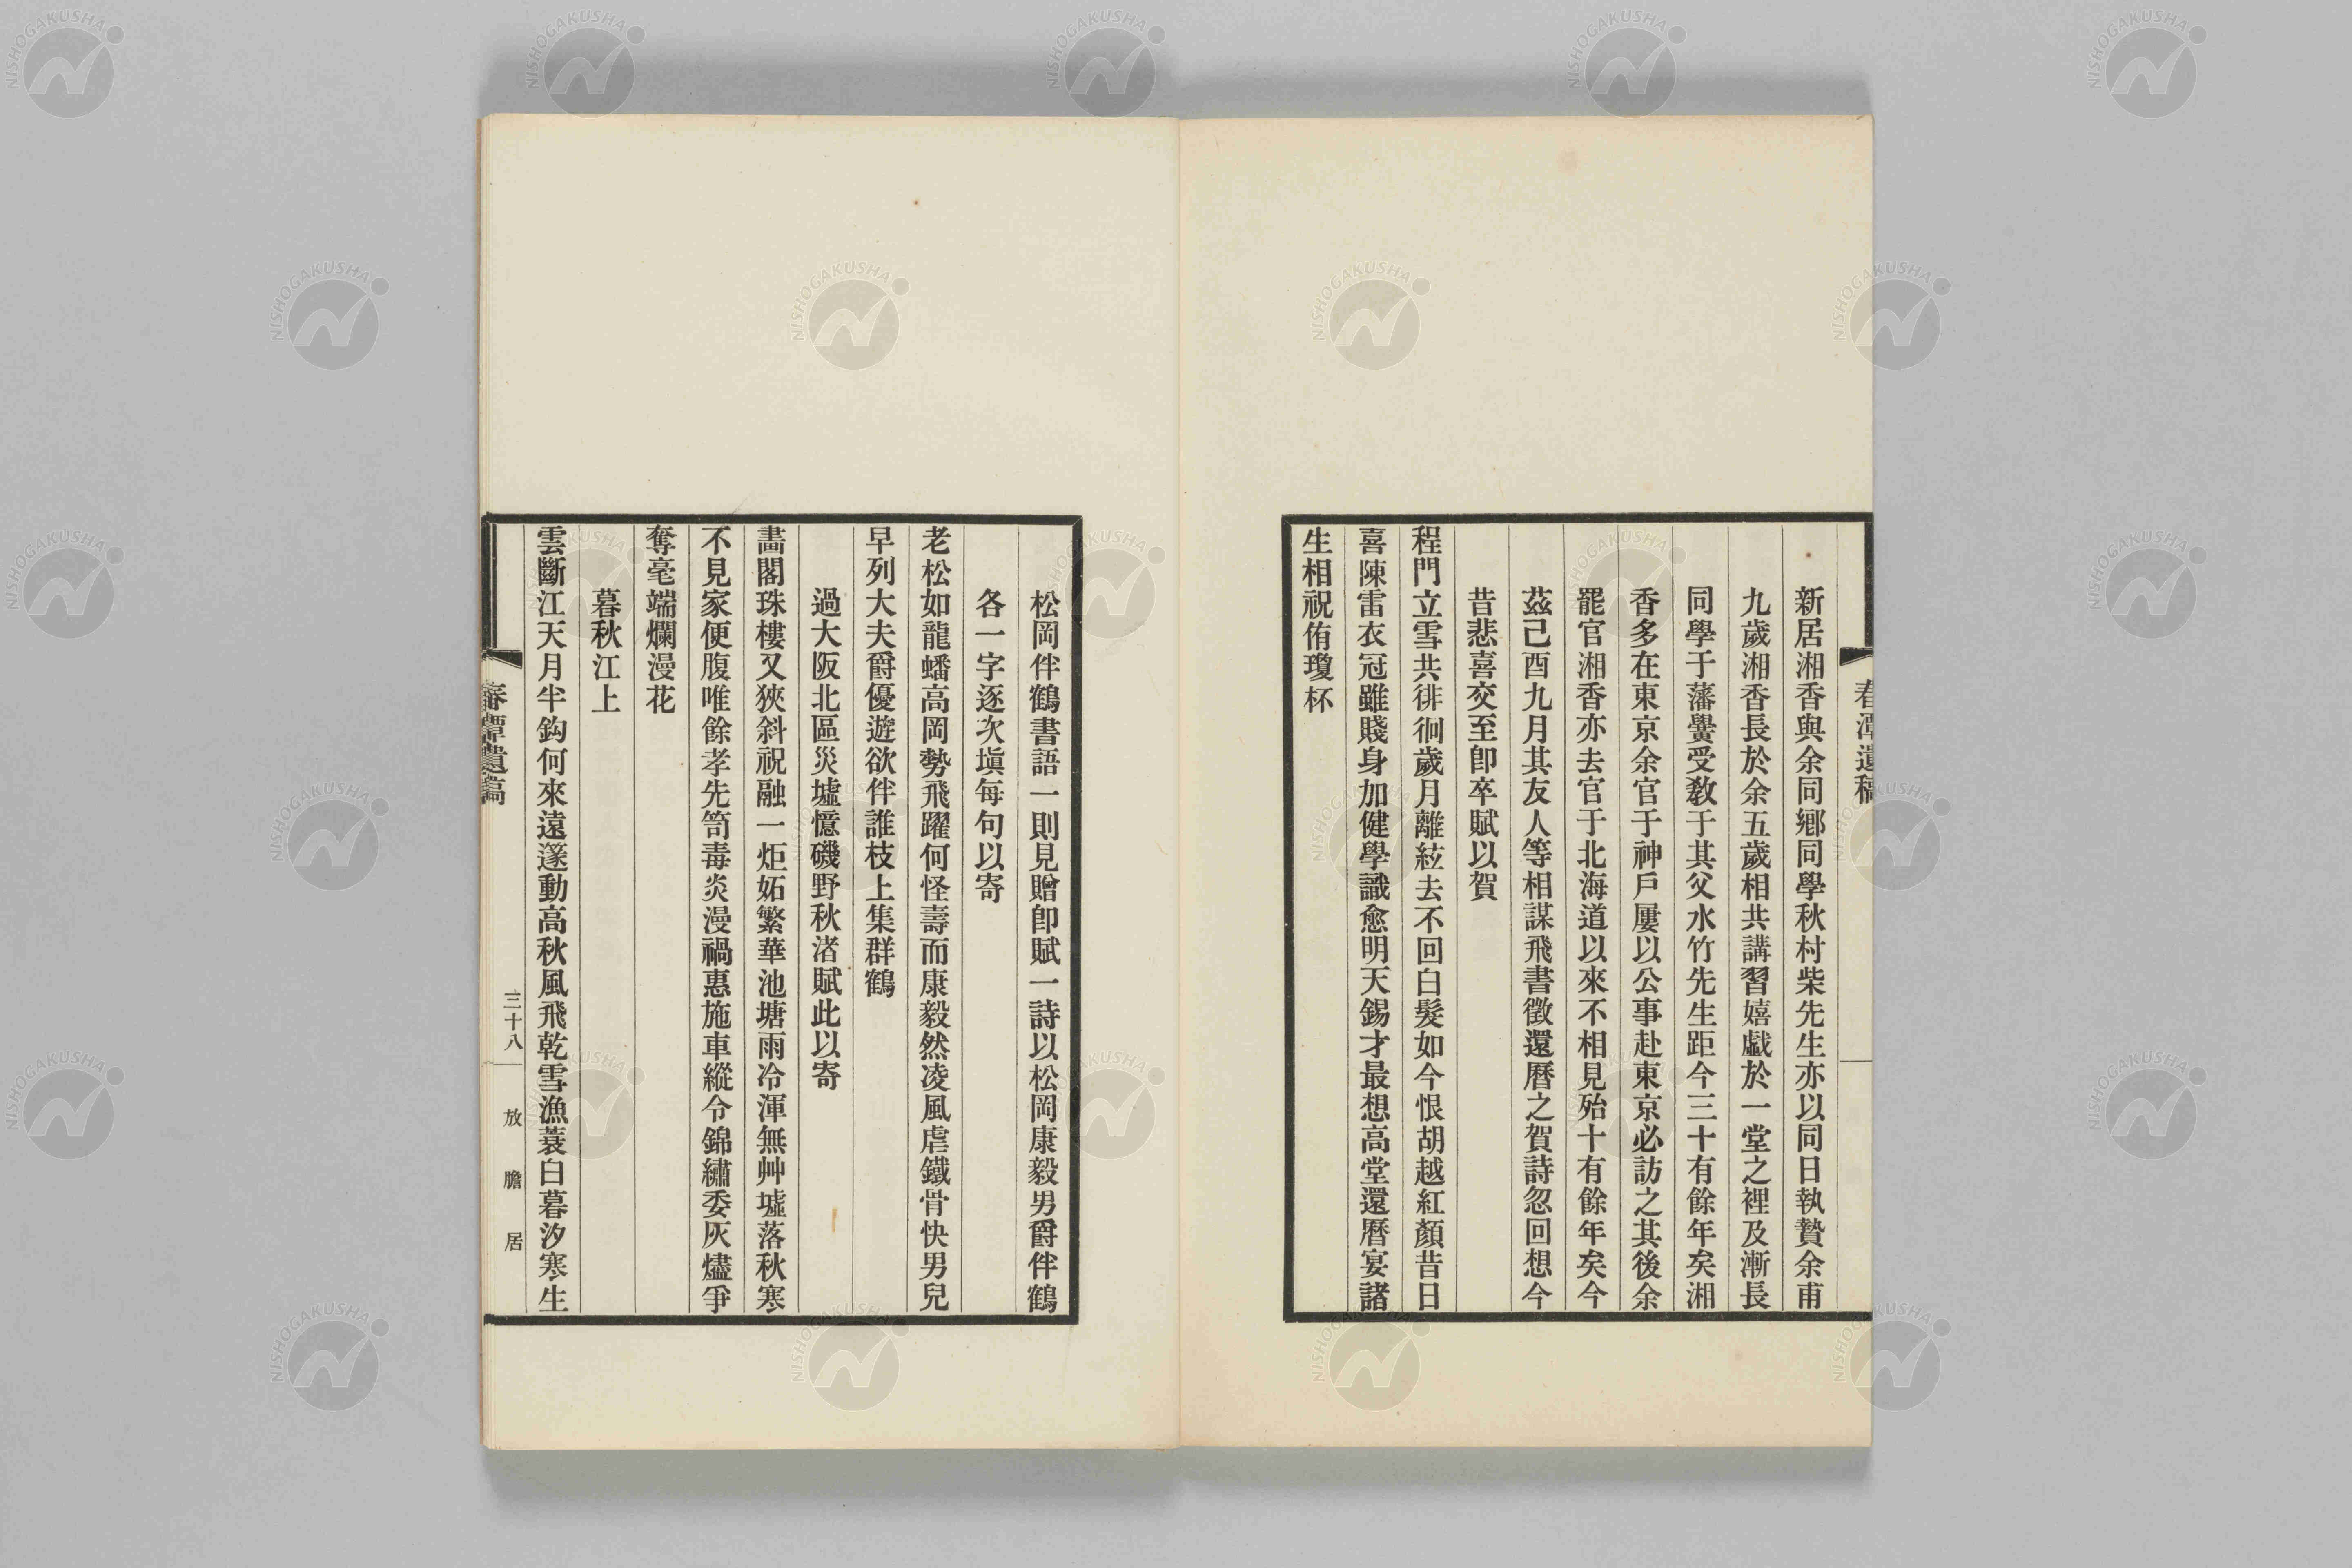 春潭遺稿
新居湘香與余同鄕同學秋村柴先生亦以同日執贄余甫
九歲湘香長於余五歲相共講習嬉戲於一堂之裡及漸長
同學于藩黌受敎于其父水竹先生距今三十有餘年矣湘
香多在東京余官于神戶屢以公事赴東京必訪之其後余
罷官湘香亦去官于北海道以來不相見殆十有餘年矣今
茲己酉九月其友人等相謀飛書徵還曆之賀詩忽回想今
昔悲喜交至卽卒賦以賀
程門立雪共徘徊歲月離紘去不回白髮如今恨胡越紅顏昔日
喜陳雷衣冠雖賤身加健學識愈明天錫才最想高堂還曆宴諸
生相祝侑瓊杯
松岡伴鶴書語一則見贈卽賦一詩以松岡康毅男爵伴鶴
各一字逐次塡每句以寄
老松如龍蟠高岡勢飛躍何怪壽而康毅然凌風虐鐵骨快男兒
早列大夫爵優遊欲伴誰枝上集群鶴
過大阪北區災墟憶磯野秋渚賦此以寄
畵閣珠樓又狹斜祝融一炬妬繁華池塘雨冷渾無艸墟落秋寒
不見家便腹唯餘孝先笥毒炎漫禍惠施車縱令錦繡委灰燼爭
奪毫端爛漫花
暮秋江上
雲斷江天月半鈎何來遠篴動高秋風飛乾雪漁蓑白暮汐寒生
春潭遺稿
三十八
放膽居
NISHOGAKUSHA